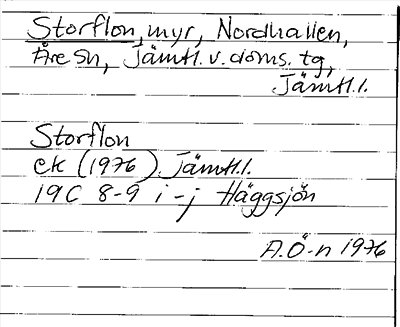 Storflon, myr, Nordhallen,
Åre sn, Jämtl. v. doms. tg,
Jämtl. l.
Storflon
ek (1976) Jämtl. l.
19C 8-9 i-j Häggsjön
A.Ö-n 1976